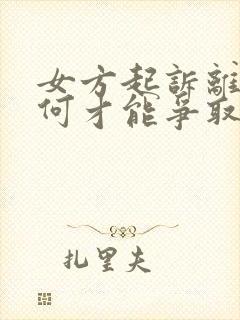 女方起訴離
何才能爭取
扎里夫